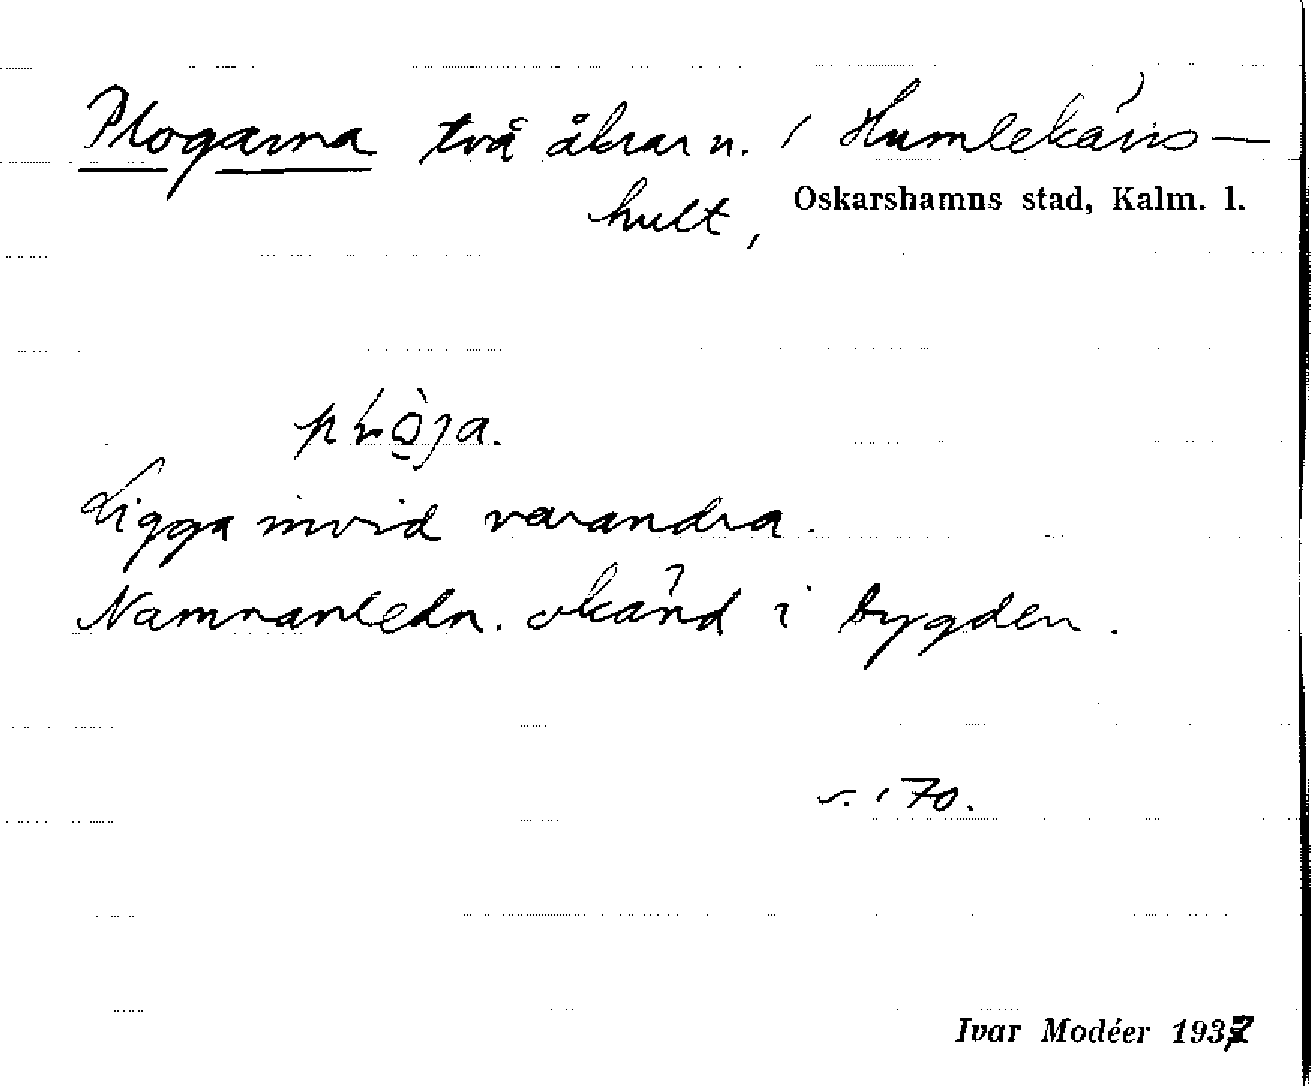 Plogarna två åkrar n. i Humlekärrs-
hult, Oskarshamns stad, Kalm. l.
Ligga invid varandra.
Namnanledn. okänd i bygden.
s. 170.
Ivar Modéer 1937